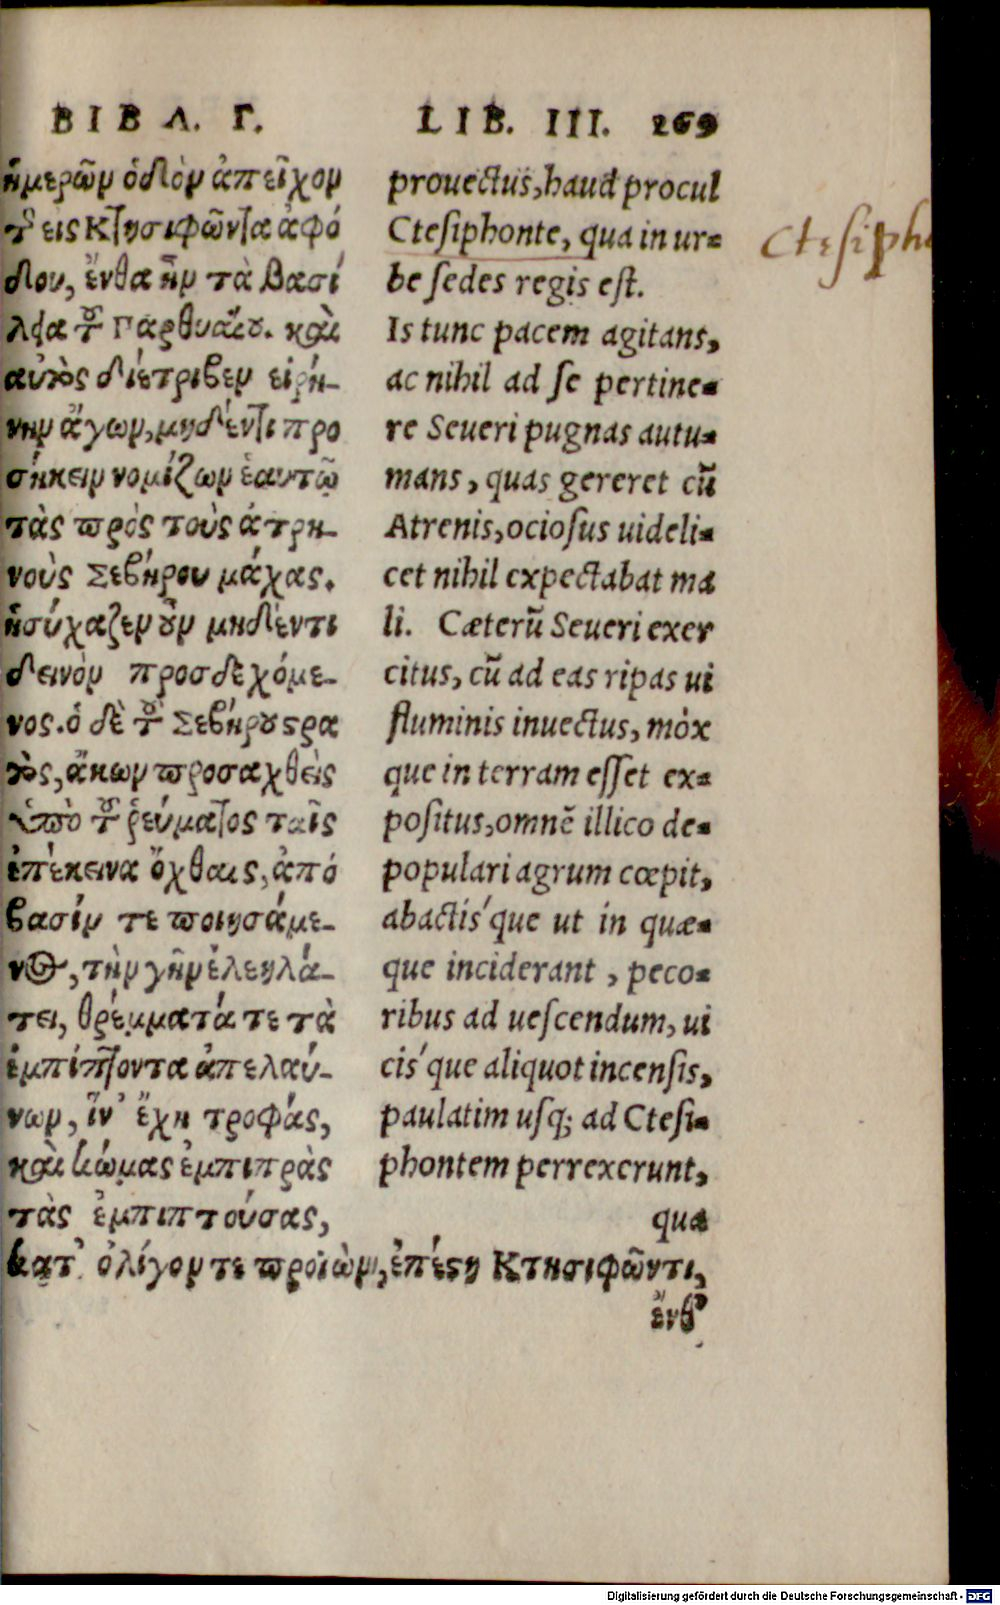 ΒΙΒΛ. Γ.
ἡμερῶν ὁδὸν ἀπεῖχον
τῆς εἰς Κτησιφῶντα ἀφό
δου, ἔνθα ἦν τὰ βασί
λεια τοῦ Παρθυαίου. καὶ
αὐτὸς διέτριβεν εἰρή-
νην ἄγων, μηδέν τι προ
σήκειν νομίζων ἑαυτῷ
τὰς πρὸς τοὺς ἀτρη-
νοὺς Σεβήρου μάχας.
ἡσύχαζεν οὖν μηδέν τι
δεινὸν προσδεχόμε-
νος. ὁ δὲ τοῦ Σεβήρου στρα
τὸς, ἄκων προσαχθεὶς
ὑπὸ τοῦ ῥεύματος ταῖς
ἐπέκεινα ὄχθαις, ἀπό
βασίν τε ποιησάμε-
νος, τὴν γῆν ἐλεηλά-
τει, θρέμματά τε τὰ
ἐμπίπτοντα ἀπελαύ-
νων, ἵν' ἔχῃ τροφάς,
καὶ κώμας ἐμπιπρὰς
τὰς ἐμπιπτούσας,
κατ' ὀλίγον τε προϊὼν, ἐπέστη Κτησιφῶντι,
ἔνθ'
LIB. III. 269
prouectus, haud procul
Ctesiphonte, qua in ur-
be sedes regis est.
Is tunc pacem agitans,
ac nihil ad se pertine-
re Seueri pugnas autu-
mans, quas gereret cū
Atrenis, ociosus uideli-
cet nihil expectabat ma
li. Cæterū Seueri exer
citus, cū ad eas ripas ui
fluminis inuectus, móx
que in terram esset ex-
positus, omnē illico de-
populari agrum cœpit,
abactis'que ut in quæ-
que inciderant, peco-
ribus ad uescendum, ui
cis'que aliquot incensis,
paulatim usq; ad Ctesi-
phontem perrexerunt,
qua
Ctesipho
Digitalisierung gefördert durch die Deutsche Forschungsgemeinschaft - DFG